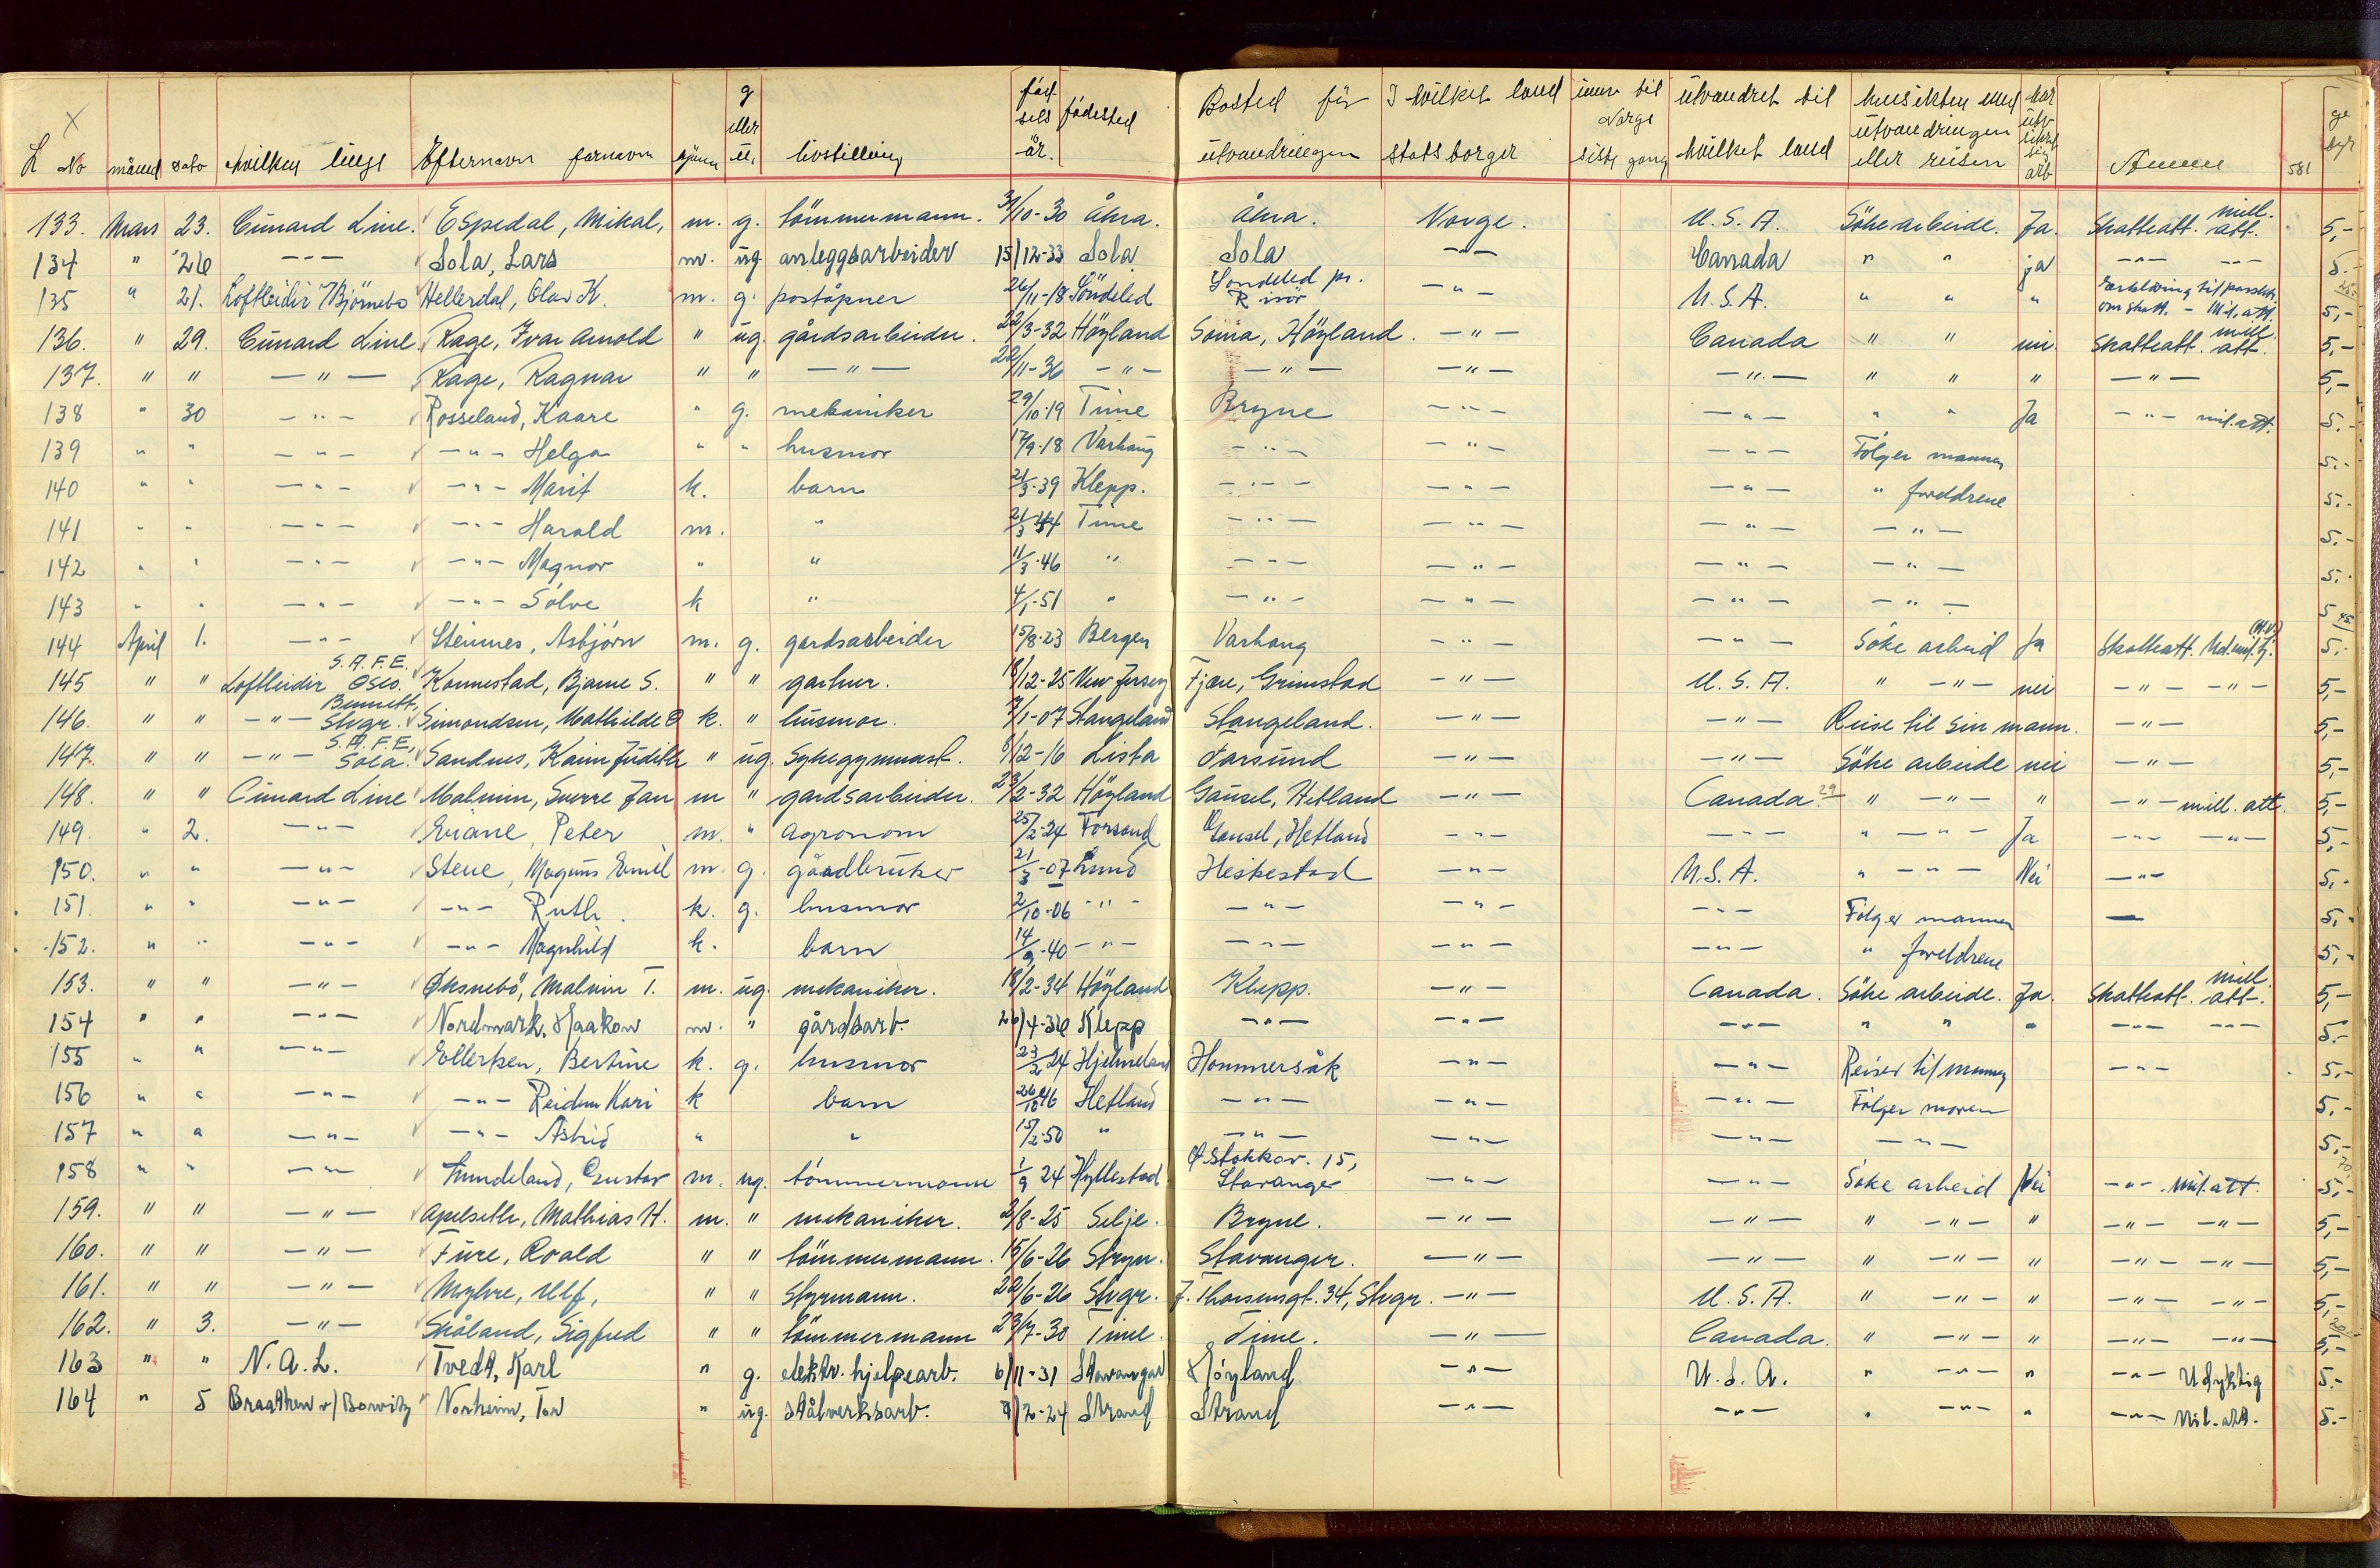 L No måned dato hvilken linje Efternavn fornavn kjønn g eller u. livstilling fødselsår. fødested Bosted før utvandringen I hvilket land statsborger inne til Norge siste gang utvandret til hvilket land hensikten med utvandringen eller reisen har utv sikret sig arb Annen 581 gebyr
133. Mars 23. Cunard Line. Espedal, Mikal, m. g. tømmermann. 3/10-30 Åkra. Åkra. Norge. U.S.A. Søke arbeide. Ja. Skatteatt. mill. att. 5,-
134 " 26 -"- Sola, Lars m. ug anleggsarbeider 15/12-33 Sola Sola -"- Canada " " ja -"- -"- 5.-
135 " 21. Loftleidir v/Bjørnebo Hellerdal, Olav K. m. g. poståpner 26/11-18 Söndeled Söndeled pr. Risør -"- U.S.A. " " " Erklæring til passktr. om skatt. - Mil. att. 5,-
136. " 29. Cunard Line. Rage, Ivar Arnold " ug. gårdsarbeider. 22/3-32 Høyland Soma, Høyland. -"- Canada " " nei Skatteatt. mill. att. 5,-
137. " " -"- Rage, Ragnar " " -"- 22/11-36 -"- -"- -"- -"- " " " -"- 5,-
138 " 30 -"- Rosseland, Kaare " g. mekaniker 29/10-19 Time Bryne -"- -"- " " Ja -"- mil. att. 5.-
139 " " -"- -"- Helga " " husmor 17/9-18 Varhaug -"- -"- -"- Følger mannen 5.-
140 " " -"- -"- Marit k. barn 21/3-39 Klepp. -"- -"- -"- " foreldrene 5.-
141 " " -"- -"- Harald m. " 21/3 44 Time -"- -"- -"- -"- 5.-
142 " " -"- -"- Magnor " " 11/3-46 " -"- -"- -"- -"- 5.-
143 " " -"- -"- Sølve k " 4/1-51 " -"- -"- -"- -"- 5
144 April 1. -"- Steinnes, Asbjørn m. g. gardsarbeider 15/8-23 Bergen Varhaug -"- -"- Søke arbeid Ja Skatteatt. 5.-
145 " " Loftleidir S.A.F.E. Oslo. Konnestad, Bjarne S. " " gartner. 18/12-25 New Jersey Fjære, Grimstad -"- U.S.A. " -"- nei -"- -"- 5,-
146. " " -"- Bennett, Stvgr. Simondsen, Mathilde k. " husmor. 7/1-07 Stangeland Stangeland. -"- -"- Reise til sin mann. -"- 5,-
147. " " -"- S.A.F.E, Sola. Sandnes, Karin Judith " ug. Sykegymnast. 8/12-16 Lista Farsund -"- -"- Søke arbeide nei -"- 5,-
148. " " Cunard Line Malmin, Sverre Jan m " gardsarbeider. 23/2-32 Høyland Gausel, Hetland -"- Canada 29 " -"- " -"- mill. att. 5,-
149. " 2. -"- Eriane, Peter m. " agronom 25/2-24 Forsand Gausel, Hetland -"- -"- " -"- Ja -"- -"- 5,-
150. " " -"- Stene, Magnus Emil m. g. gårdbruker 21/3-07 Lund Heskestad -"- U.S.A. " -"- Nei -"- 5,-
151. " " -"- -"- Ruth. k. g. husmor 2/10-06 -"- -"- -"- -"- Følger mannen — 5.-
152. " " -"- -"- Magnhild k. barn 14/9-40 -"- -"- -"- -"- " foreldrene 5,-
153. " " -"- Øksnebø, Malvin T. m. ug. mekaniker. 18/2-34 Høyland Klepp. -"- Canada. Søke arbeide. Ja. Skatteatt. mill. att. 5,-
154 " " -"- Nordmark, Haakon m. " gårdsarb. 26/4-36 Klepp -"- -"- -"- " " " -"- -"- 5.-
155 " " -"- Ellertsen, Bertine k. g. husmor 23/2 24 Hjelmeland Hommersåk -"- -"- Reiser til mannen -"- 5.-
156 " " -"- -"- Reidun Kari k barn 26/10 46 Hetland -"- -"- -"- Følger moren 5.-
157 " " -"- -"- Astrid " " 15/2-50 " -"- -"- -"- -"- 5,-
158 " " -"- Lundeland, Gustav m. ug. tømmermann 1/9 24 Hyllestad Ø. Stokkav. 15, Stavanger -"- -"- Søke arbeid Nei -"- mil. att. 5,-
159. " " -"- Apelseth, Mathias H. m. " mekaniker. 2/8-25 Selje. Bryne. -"- -"- " -"- " -"- -"- 5,-
160. " " -"- Fure, Roald " " tømmermann. 15/6-26 Stryn. Stavanger. -"- -"- " -"- " -"- -"- 5,-
161. " " -"- Myhre, Ulf, " " Styrmann. 22/6-26 Stvgr. J. Thorsensgt. 34, Stvgr. -"- U.S.A. " -"- " -"- -"- 5,-
162. " 3. -"- Skåland, Sigfred " " tømmermann 23/7-30 Time. Time. -"- Canada. " -"- " -"- -"- 5,-
163 " " N.A.L. Tvedt, Karl " g. elektr. hjelpearb. 6/11-31 Stavanger Høyland -"- U.S.A. " -"- " -"- Udyktig 5.-
164 " 5 Braathen v/Bowitz Norheim, Tor " ug. stålverksarb. 9/2-24 Strand Strand -"- -"- " -"- " -"- Mil. att. 5.-